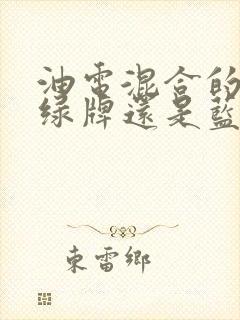 油電混合的
綠牌還是藍
東雷鄉